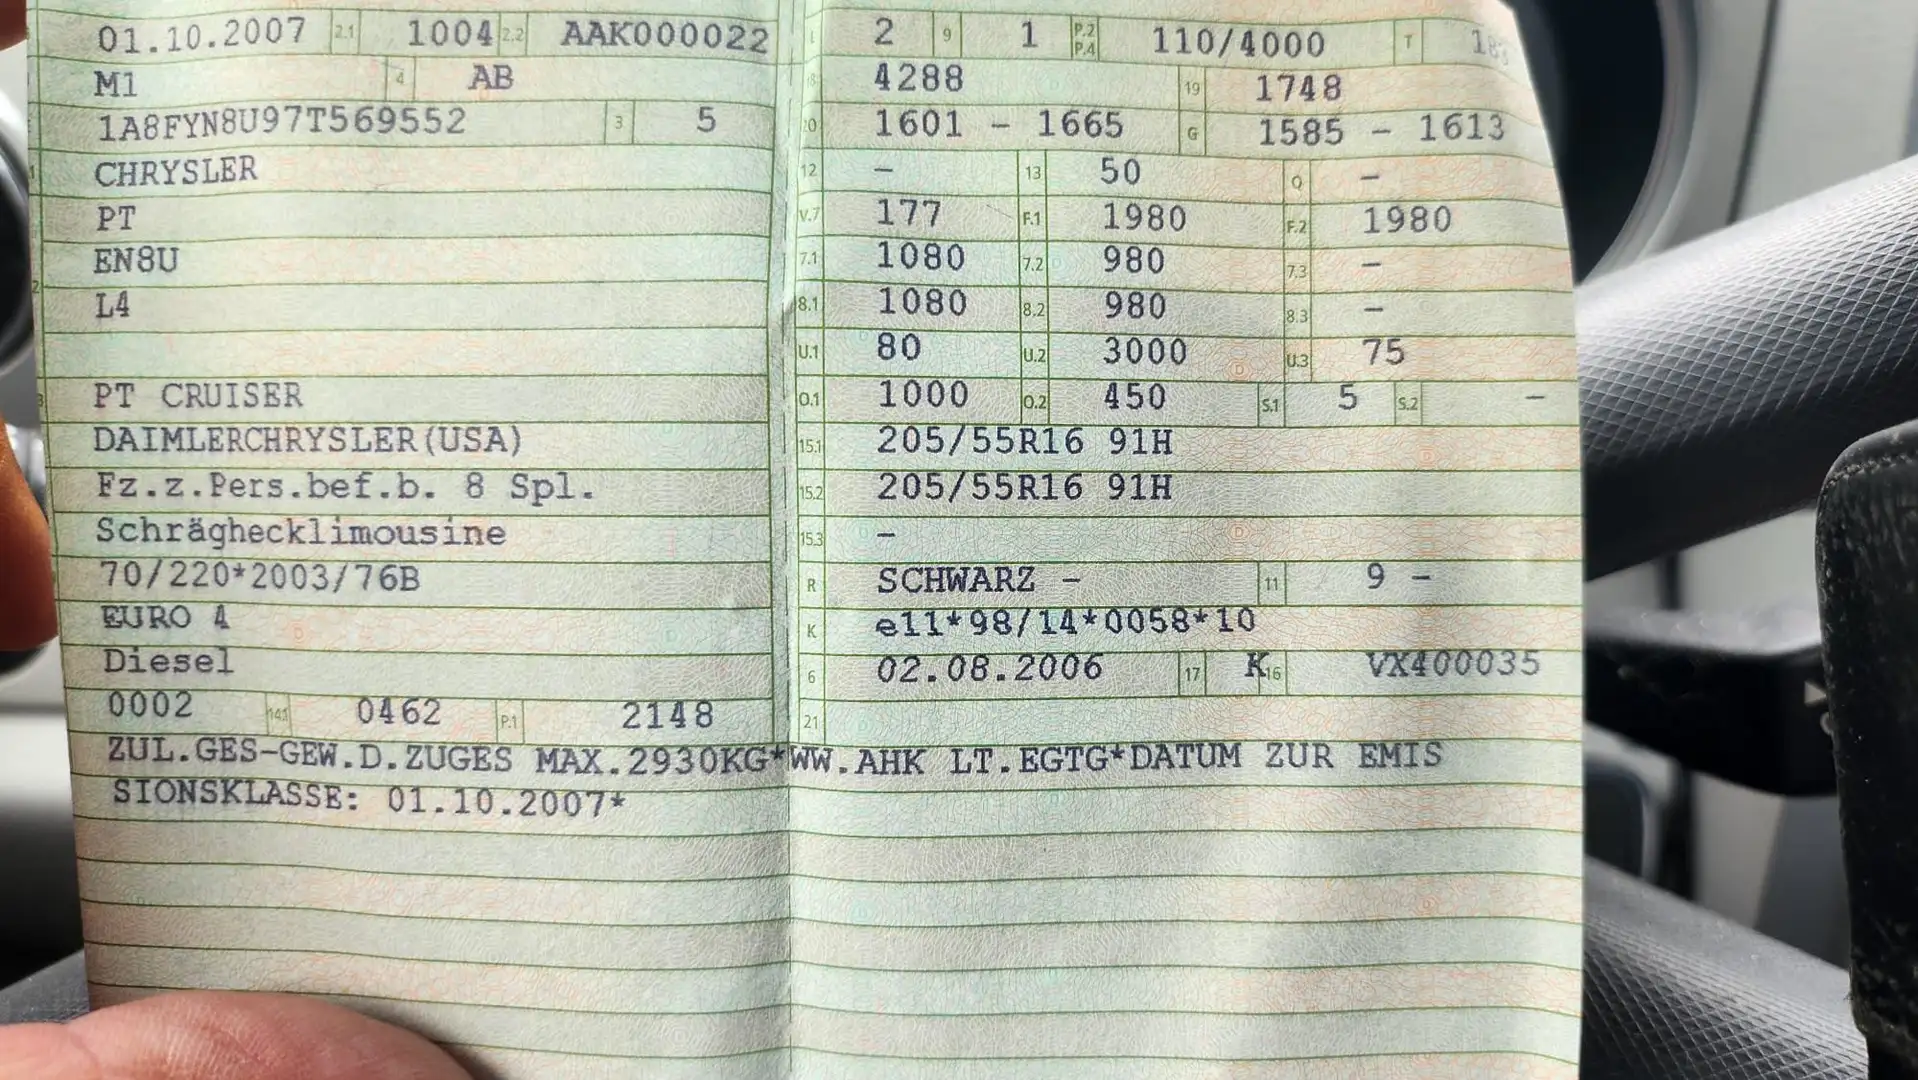 01.10.2007 2.1 1004 2.2 AAK000022 2 9 1 P.2 P.4 110/4000 T
M1 4 AB 4288 19 1748
1A8FYN8U97T569552 3 5 20 1601 - 1665 G 1585 - 1613
CHRYSLER 12 - 13 50 Q -
PT V.7 177 F.1 1980 F.2 1980
EN8U 7.1 1080 7.2 980 7.3 -
L4 8.1 1080 8.2 980 8.3 -
U.1 80 U.2 3000 U.3 75
PT CRUISER O.1 1000 O.2 450 S.1 5 S.2 -
DAIMLERCHRYSLER(USA) 15.1 205/55R16 91H
Fz.z.Pers.bef.b. 8 Spl. 15.2 205/55R16 91H
Schräghecklimousine 15.3 -
70/220*2003/76B R SCHWARZ - 11 9 -
EURO 4 K e11*98/14*0058*10
Diesel 6 02.08.2006 17 K 16 VX400035
0002 14.1 0462 P.1 2148 21
ZUL.GES-GEW.D.ZUGES MAX.2930KG*WW.AHK LT.EGTG*DATUM ZUR EMIS
SIONSKLASSE: 01.10.2007*